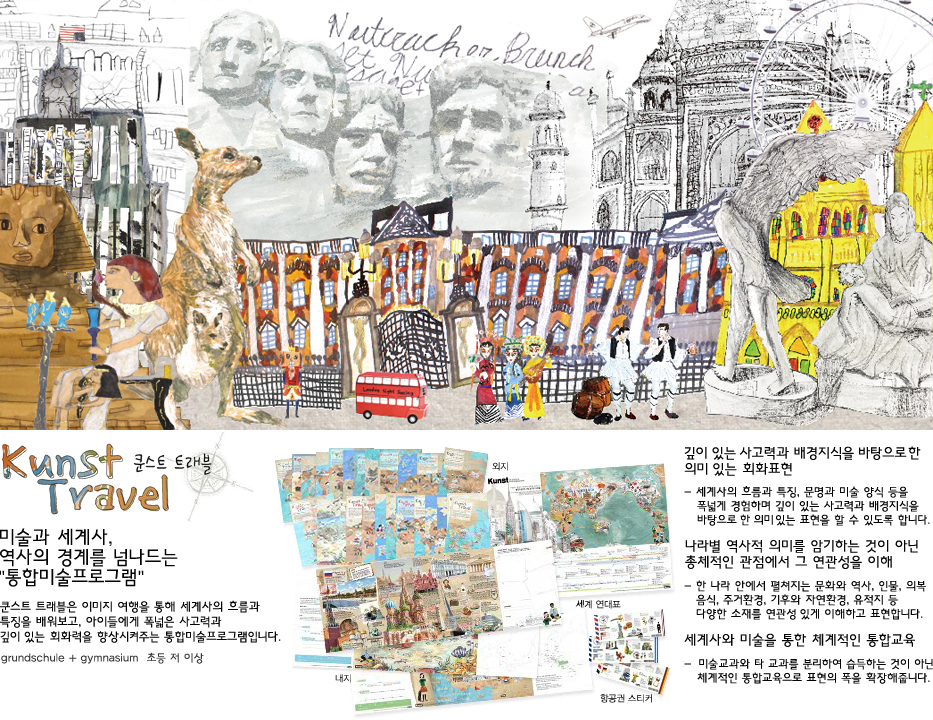 Nutcracker, Brunch
London Night Seeing
Kunst
Travel
쿤스트 트래블
미술과 세계사,
역사의 경계를 넘나드는
"통합미술프로그램"
쿤스트 트래블은 이미지 여행을 통해 세계사의 흐름과
특징을 배워보고, 아이들에게 폭넓은 사고력과
깊이 있는 회화력을 향상시켜주는 통합미술프로그램입니다.
grundschule + gymnasium 초등 저 이상
외지
Kunst
세계 연대표
내지
항공권 스티커
깊이 있는 사고력과 배경지식을 바탕으로한
의미 있는 회화표현
– 세계사의 흐름과 특징, 문명과 미술 양식 등을
폭넓게 경험하며 깊이 있는 사고력과 배경지식을
바탕으로 한 의미있는 표현을 할 수 있도록 합니다.
나라별 역사적 의미를 암기하는 것이 아닌
총체적인 관점에서 그 연관성을 이해
– 한 나라 안에서 펼쳐지는 문화와 역사, 인물, 의복
음식, 주거환경, 기후와 자연환경, 유적지 등
다양한 소재를 연관성 있게 이해하고 표현합니다.
세계사와 미술을 통한 체계적인 통합교육
– 미술교과와 타 교과를 분리하여 습득하는 것이 아닌
체계적인 통합교육으로 표현의 폭을 확장해줍니다.